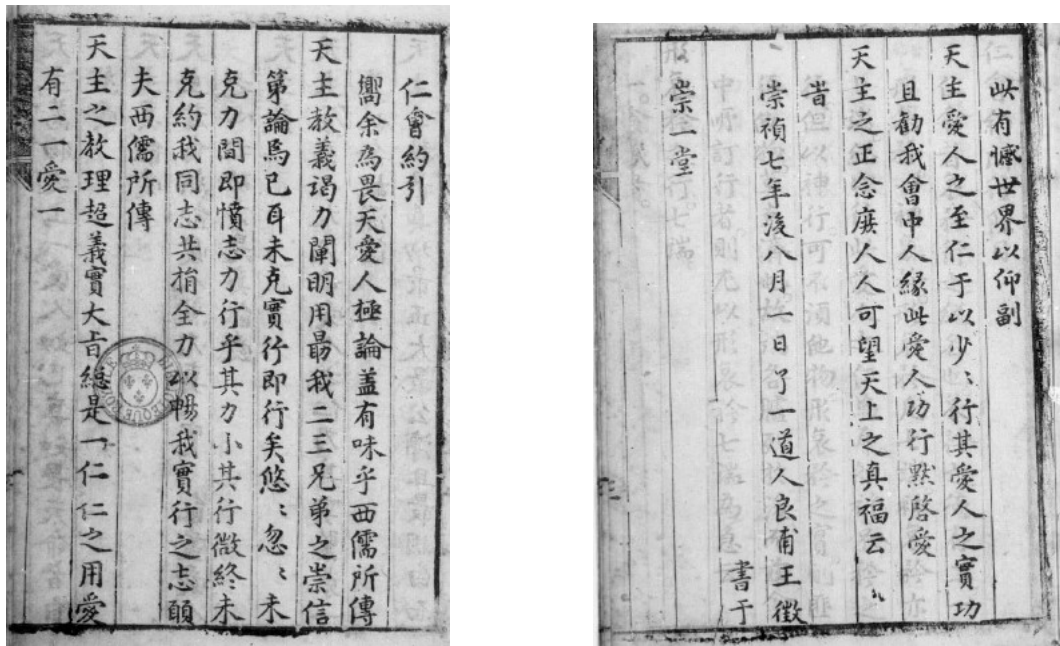 仁會約引
嚮余為畏天愛人極論盖有味乎西儒所傳
天主教義竭力闡明用勗我二三兄弟之崇信
第論焉已耳未克實行即行矣悠〻忽〻未
克力間即憤志力行乎其力小其行微終未
克約我同志共捐全力以暢我實行之志願
夫西儒所傳
天主之教理超義實大旨總是一仁仁之用愛
有二一愛一
此有憾世界以仰副
天主愛人之至仁于以少〻行其愛人之實功
且勸我會中人緣此愛人功行默啓愛
天主之正念庶人人可望天上之真福云〻
旹
崇禎七年後八月一日了一道人良甫王徵
書于
崇一堂